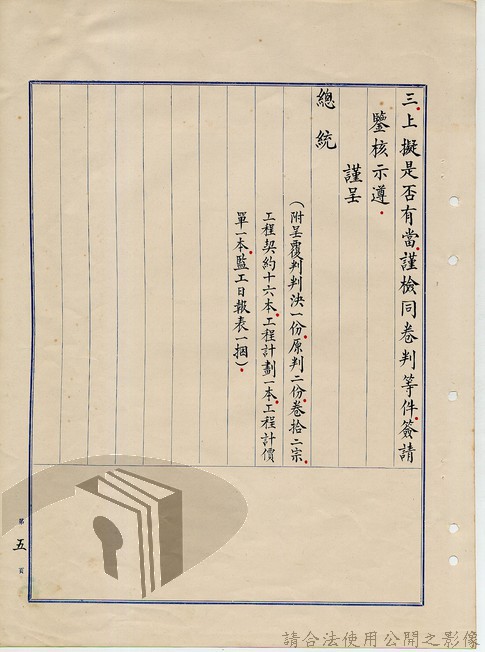 三上擬是否有當謹檢同卷判等件簽請
鑒核示遵
謹呈
總統
（附呈覆判判決一份原判二份卷拾二宗
工程契約十六本工程計劃一本工程計價
單一本監工日報表一捆）
第五頁
請合法使用公開之影像